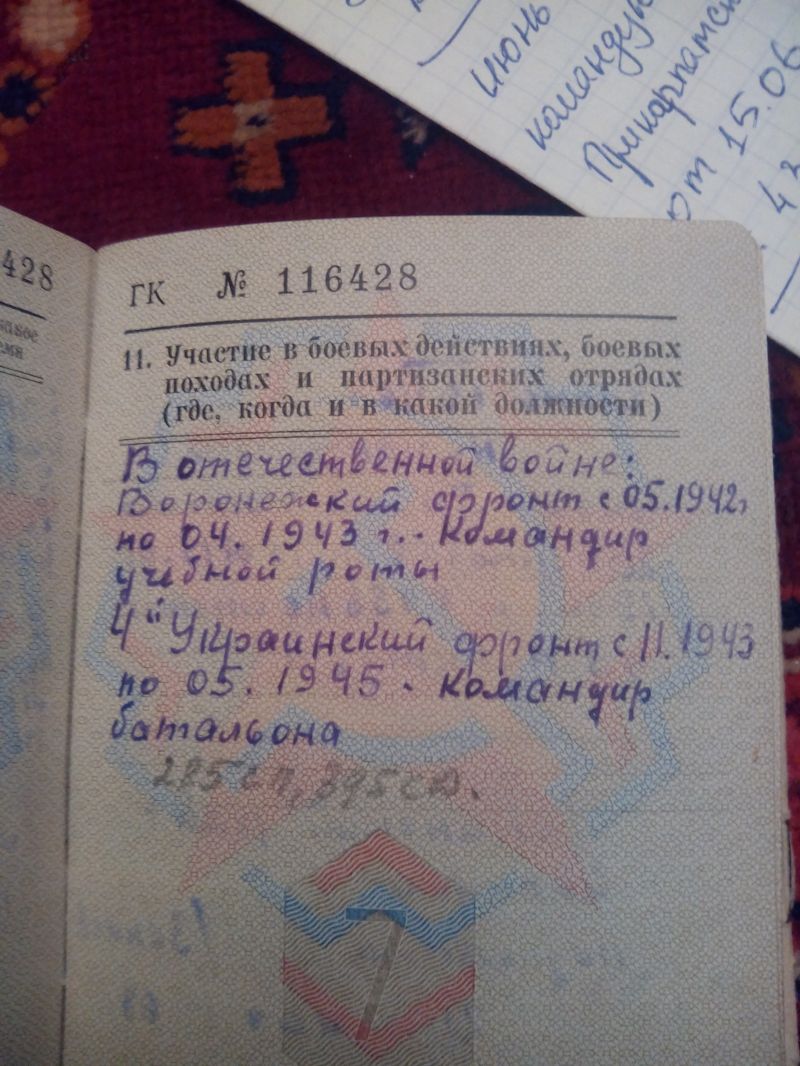 июнь
командую
Прикарпатск
от 15.06
42
428
ГК № 116428
11. Участие в боевых действиях, боевых
походах и партизанских отрядах
(где, когда и в какой должности)
В отечественной войне:
Воронежский фронт с 05.1942г
по 04.1943 г. - командир
учебной роты
4й Украинский фронт с 11.1943
по 05.1945 - командир
батальона